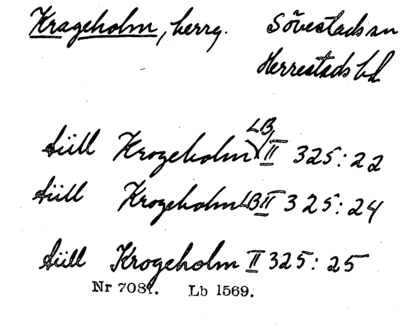 Krageholm, herrg. Sövestads sn
Herrestads hd
tüll Krogeholm LB II 325:22
tüll Krogeholm LB II 325:24
tüll Krogeholm II 325:25
Nr 7081. Lb 1569.